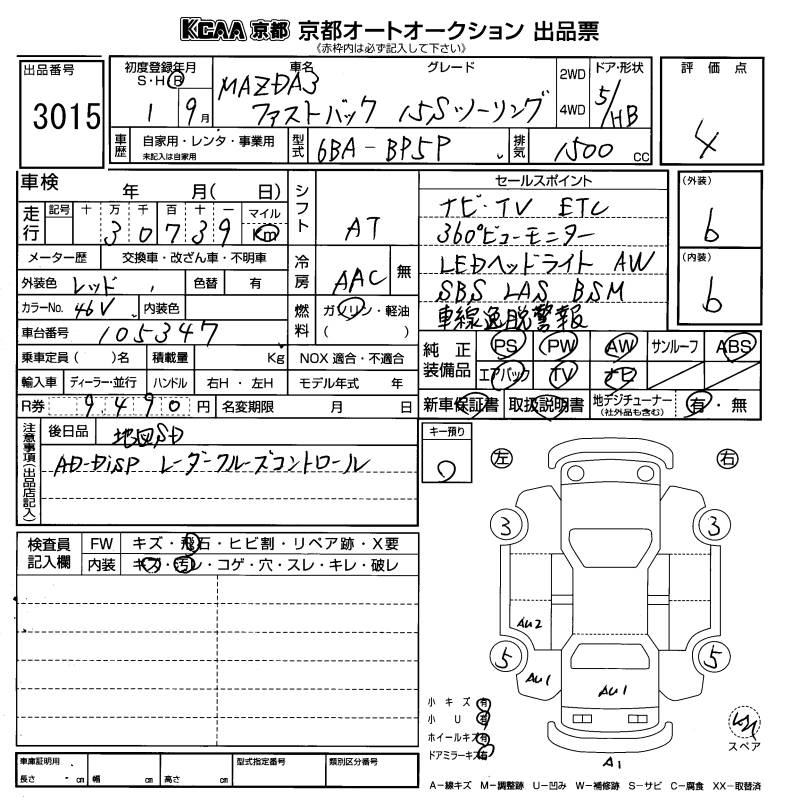 KCAA 京都 京都オートオークション 出品票
《赤枠内は必ず記入して下さい》
出品番号
3015
初度登録年月
S・H・R
1 9月
車名 グレード
MAZDA3
ファストバック 15Sツーリング
2WD
4WD
ドア・形状
5/HB
評価点
4
車歴
自家用・レンタ・事業用
未記入は自家用
型式
6BA-BP5P
排気
1500 CC
車検 年 月( 日)
走行
記号 十 万 千 百 十 一 マイル
30739 Km
シフト
AT
メーター歴 交換車・改ざん車・不明車
外装色 レッド 色替 有
冷房
AAC 無
カラーNo. 46V 内装色
燃料
ガソリン・軽油
( )
車台番号 105347
乗車定員 ( )名 積載量 Kg NOX 適合・不適合
輸入車 ディーラー・並行 ハンドル 右H・左H モデル年式 年
R券 9,490 円 名変期限 月 日
セールスポイント
ナビ・TV ETC
360°ビューモニター
LEDヘッドライト AW
SBS LAS BSM
車線逸脱警報
(外装)
6
(内装)
6
純正装備品
PS PW AW サンルーフ ABS
エアバック TV ナビ
新車保証書 取扱説明書 地デジチューナー
(社外品も含む) 有・無
注意事項(出品店記入)
後日品 地図SD
AD-DISP レーダークルーズコントロール
キー預り
0
左 右
検査員記入欄
FW キズ・飛石・ヒビ割・リペア跡・X要
内装 キズ・汚レ・コゲ・穴・スレ・キレ・破レ
3 3
AU2
5 5
AU1 AU1
A1
小キズ 有
小U 有
ホイールキズ 有
ドアミラーキズ 有
スペア
車庫証明用
長さ cm 幅 cm 高さ cm
型式指定番号
類別区分番号
A−線キズ M−調整跡 U−凹み W−補修跡 S−サビ C−腐食 XX−取替済